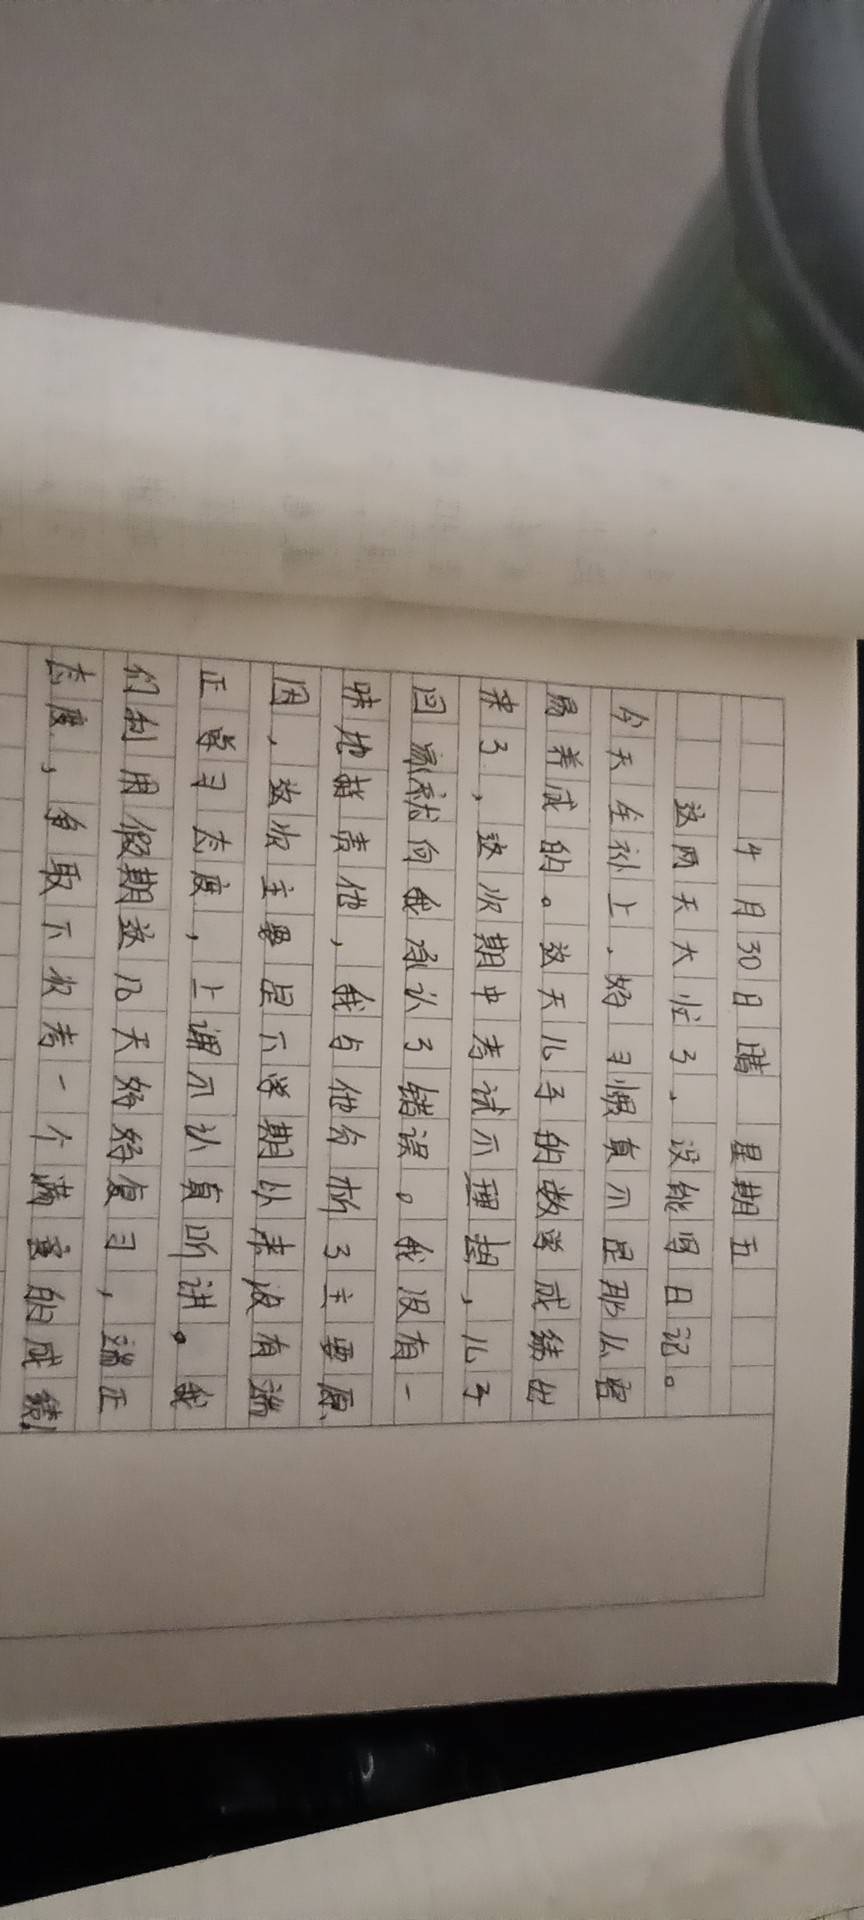 4月30日 晴 星期五
这两天大忙了、没能写日记。
今天全补上、好习惯真不是那么容
易养成的。这天儿子的数学成绩出
来了，这次期中考试不理想，儿子
回家就向我承认了错误。我没有一
味地指责他，我与他分析了主要原
因，这次主要是下学期以来没有端
正学习态度，上课不认真听讲。我
们利用假期这几天好好复习，端正
态度，争取下次考一个满意的成绩！